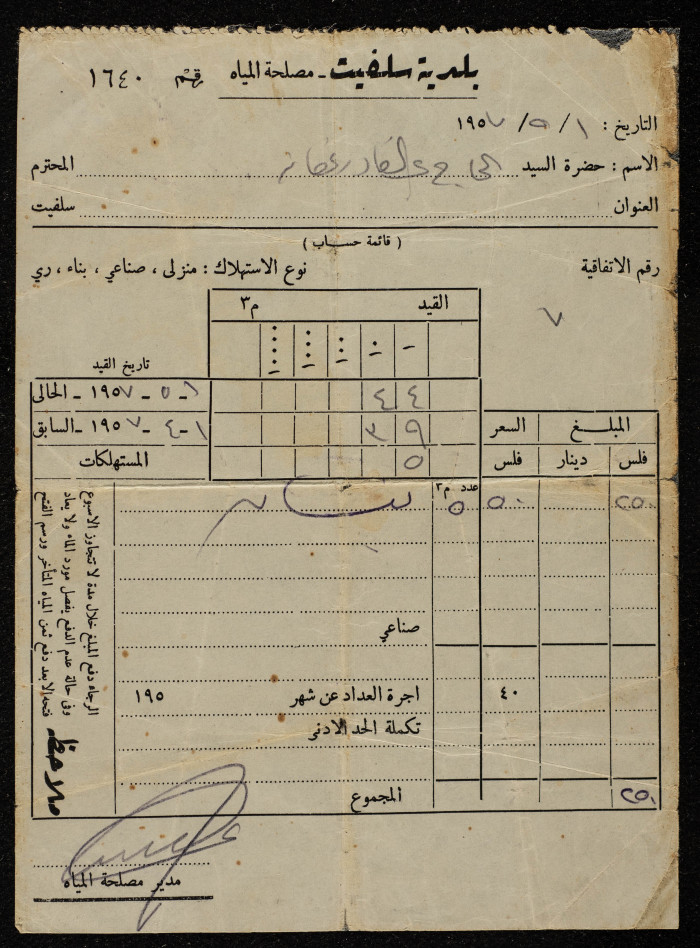 بلدية سلفيت ـ مصلحة المياه رقم ١٦٤٠
التاريخ : ١ / ٥ / ١٩٥٧
الاسم : حضرة السيد الحاج المحترم
العنوان سلفيت
( قائمة حساب )
رقم الاتفاقية نوع الاستهلاك : منزلى ، صناعي ، بناء ، ري
٧
القيد م٣
تاريخ القيد
٤٤ ١ ـ ٥ ـ ١٩٥٧ ـ الحالى
المبلغ السعر ٣٩ ١ ـ ٤ ـ ١٩٥٧ ـ السابق
فلس دينار فلس ٥ المستهلكات
عدد م٣
٢٥٠ ٥٠ ٥
صناعي
٤٠ اجرة العداد عن شهر ١٩٥
تكملة الحد الادنى
المجموع ٢٥٠
ملاحظه
الرجاء دفع المبلغ خلال مدة لا تتجاوز الاسبوع
وفى حالة عدم الدفع يفصل مورد الماء ولا يعاد
فتحه الا بعد دفع ثمن المياه المتأخر ورسم الفتح
مدير مصلحة المياه